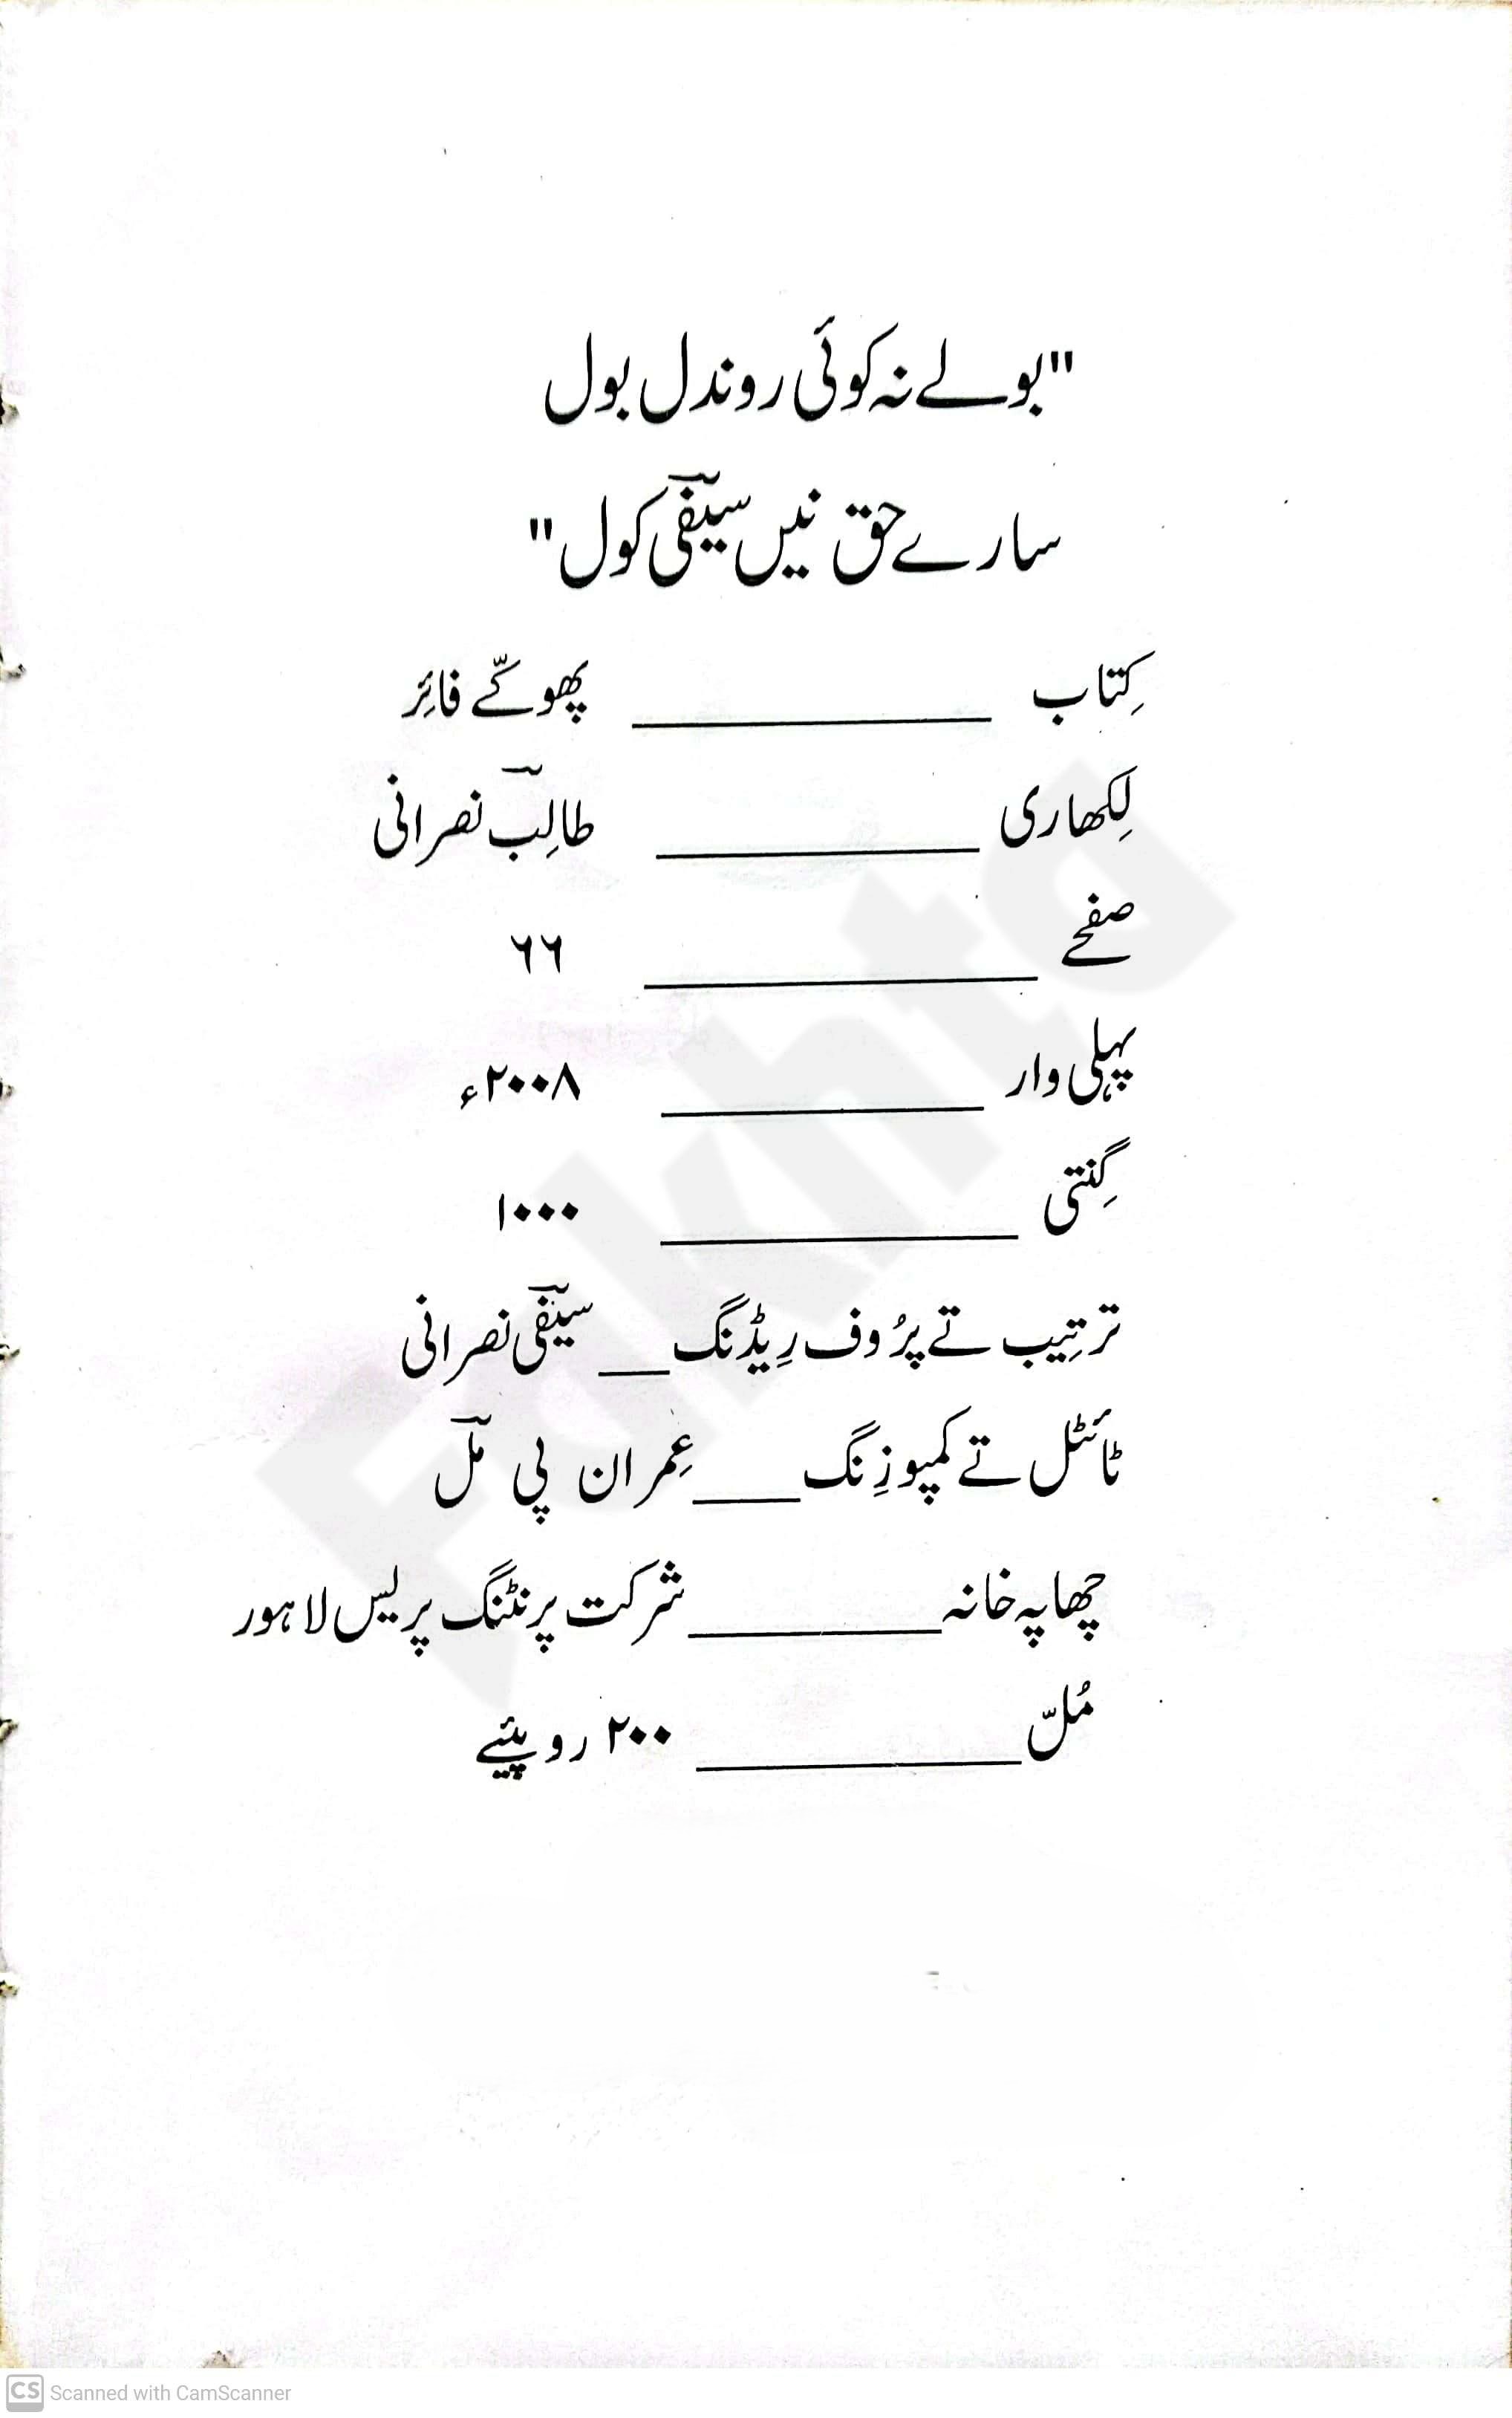 "بولے نہ کوئی روندل بول
سارے حق نیں سیفیؔ کول"
کِتاب ____________ پھوکّے فائِر
لِکھاری ____________ طالِبؔ نصرانی
صفحے ____________ ٦٦
پہلی وار ____________ ۲۰۰۸ء
گِنتی ____________ ۱۰۰۰
ترتِیب تے پرُوف رِیڈنگ __ سیفیؔ نصرانی
ٹائٹل تے کمپوزِنگ ____ عِمران پی ملؔ
چھاپہ خانہ ________ شرکت پرنٹنگ پریس لاہور
مُلّ ____________ ۲۰۰ روپئیے
Fakhta
CS Scanned with CamScanner